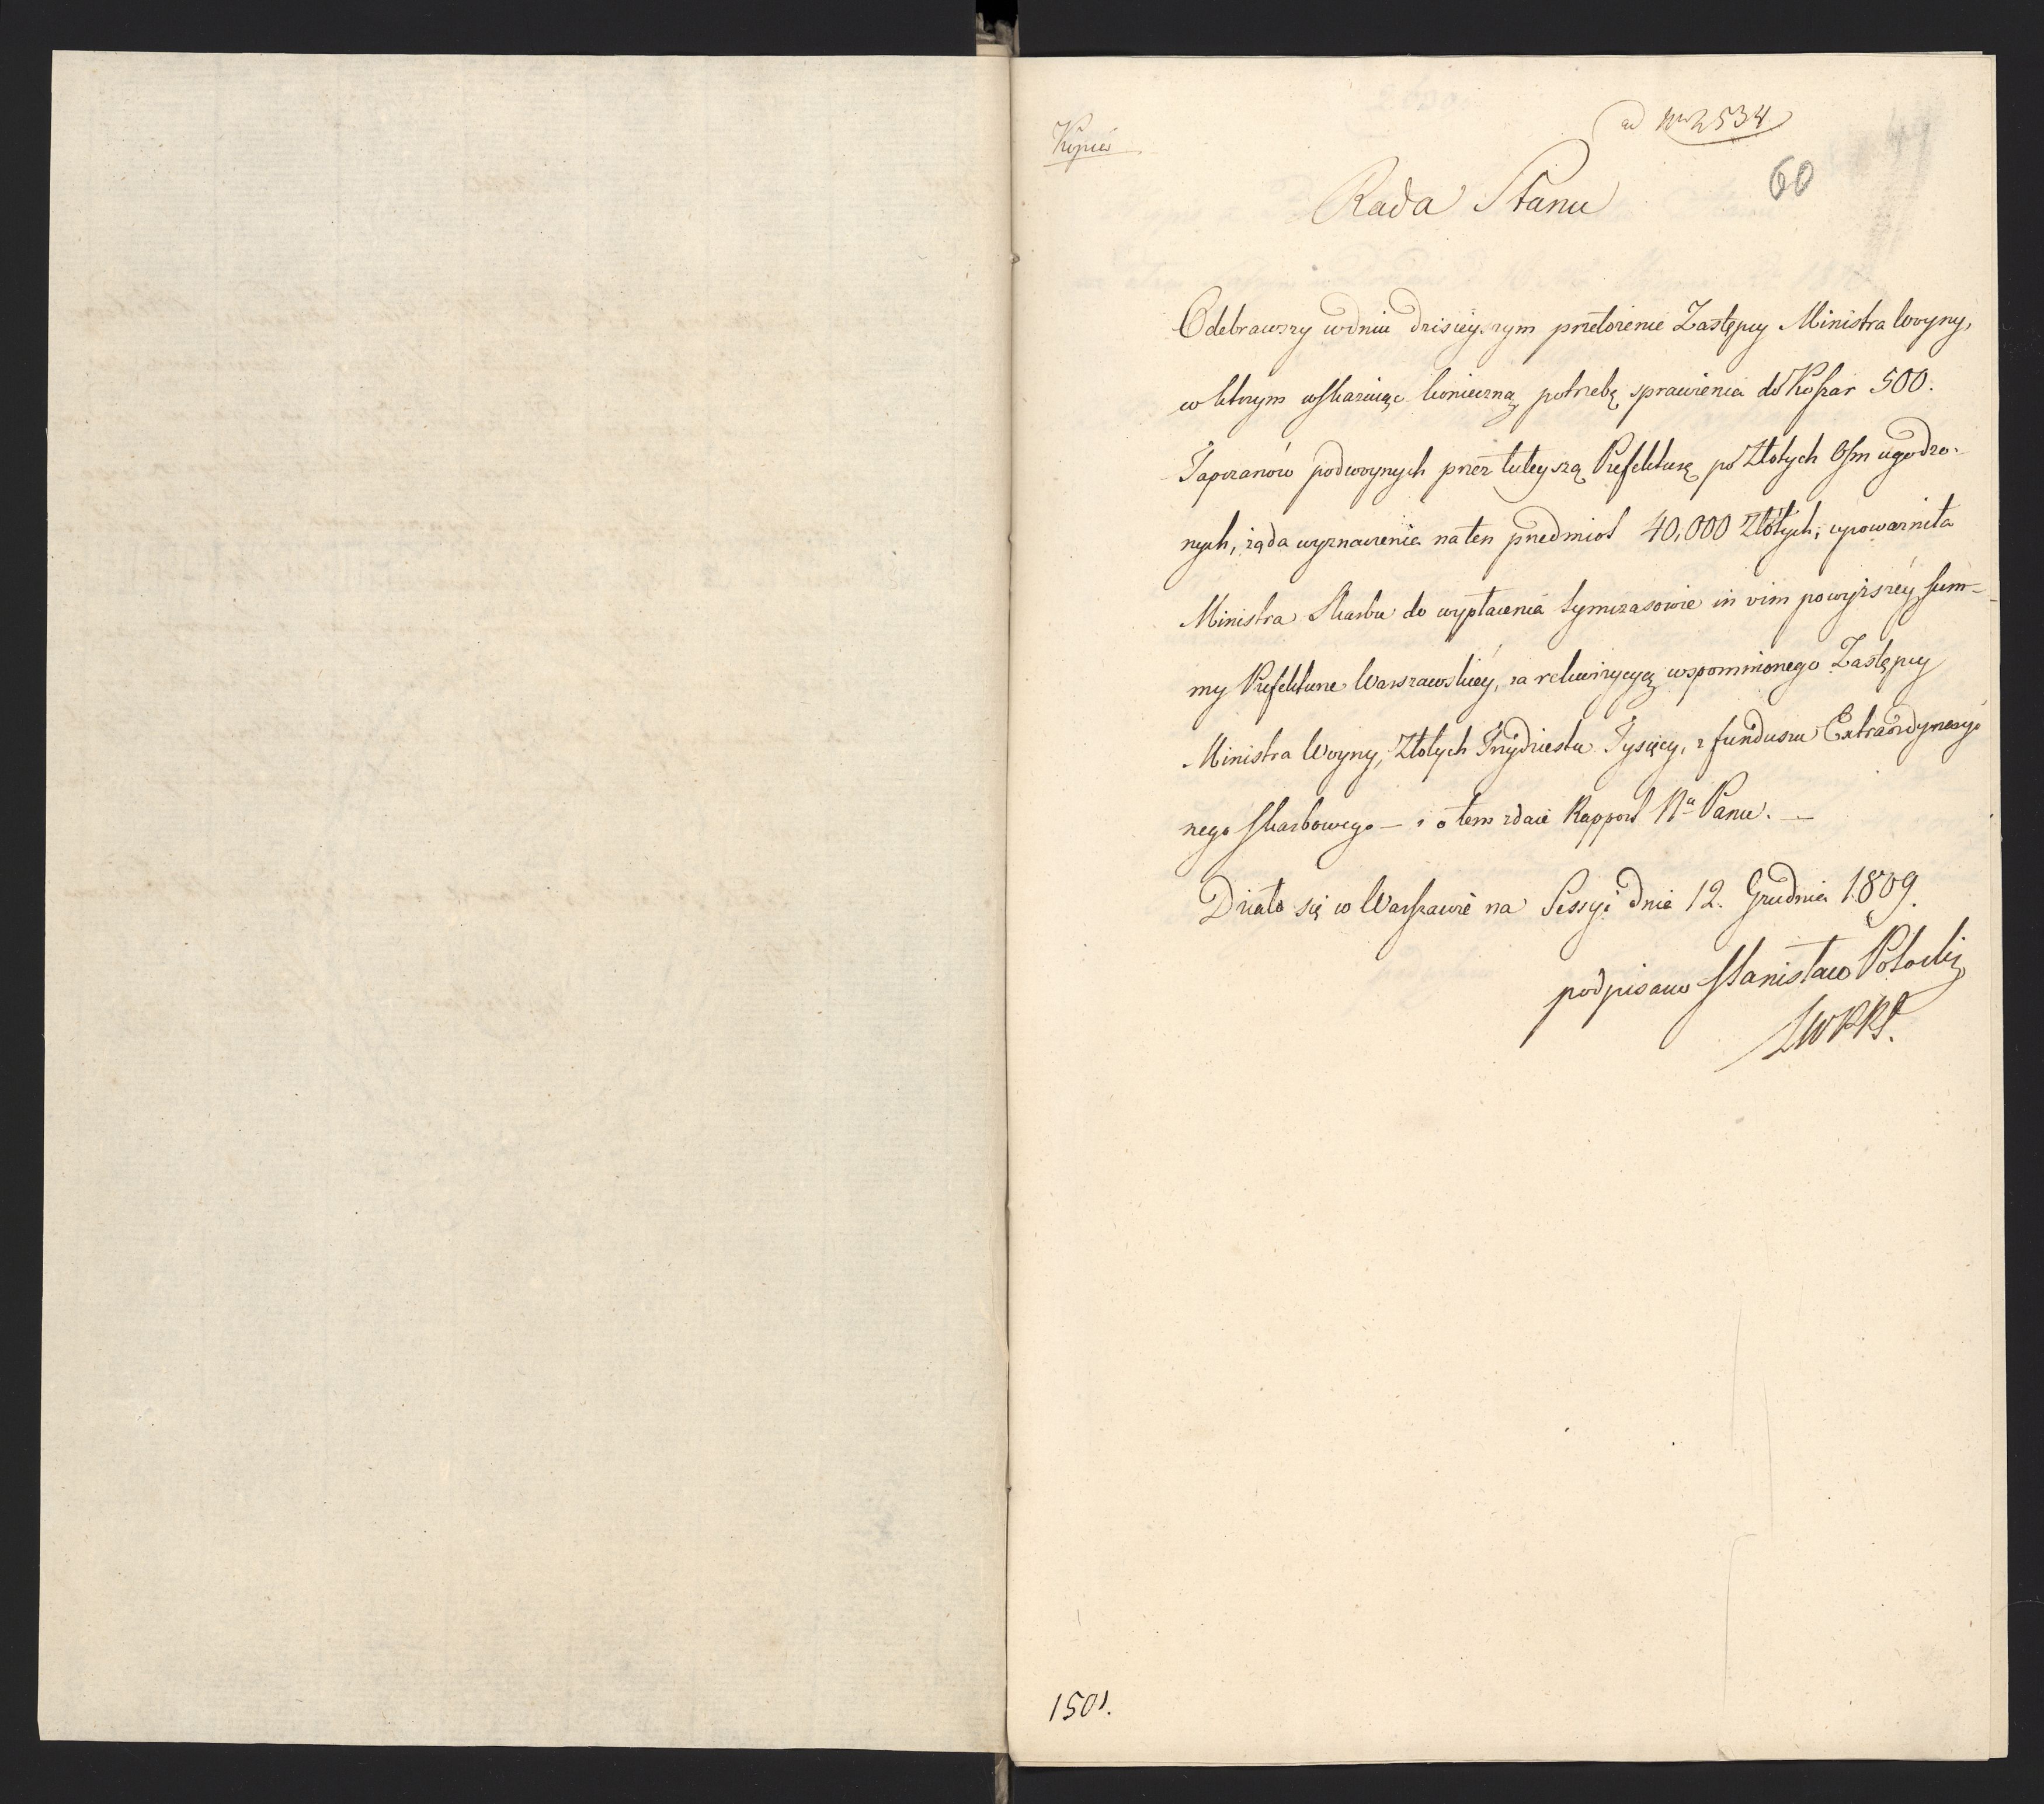 Kopia
ad Nrm 2534
60
Rada Stanu
Odebrawszy w dniu dzisieyszym przełożenie Zastępcy Ministra Woyny,
w którym wskazuiąc konieczną potrzebę sprawienia do Koszar 500.
Tapczanów podwoynych przez tuteyszą Prefekturę po Złotych Osm ugodzo-
nych, żąda wyznaczenia na ten przedmiot 40,000 Złotych, upoważniła
Ministra Skarbu do wypłacenia tymczasowie in vim powyższéy Sum-
my Prefekturze Warszawskiéy, za rekwizycyą wspomnionego Zastępcy
Ministra Woyny, Złotych Trzydziestu Tysięcy, z funduszu Extraordynaryi-
nego Skarbowego — i o tem zdaie Rapport Nu Panu. —
Działo się w Warszawie na Sessyi dnia 12. Grudnia 1809.
podpisano Stanisław Potocki
1501.